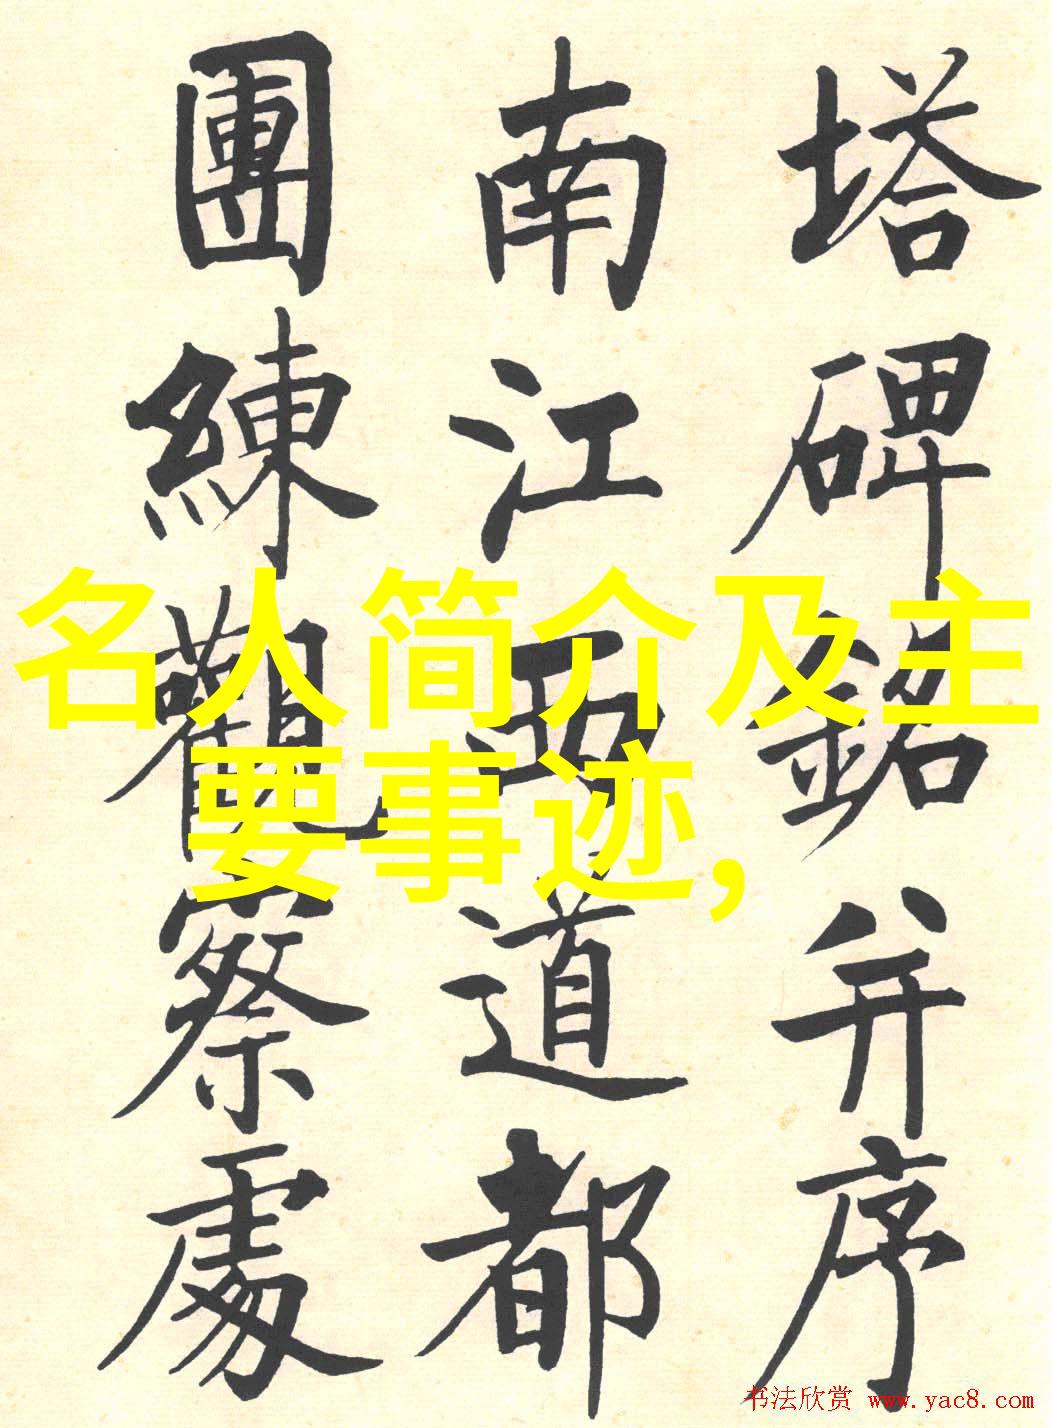 塔碑銘并序
南江西道都
團練觀察處
名人简介及主
要事迹,
书法欣赏 www.yac8.com